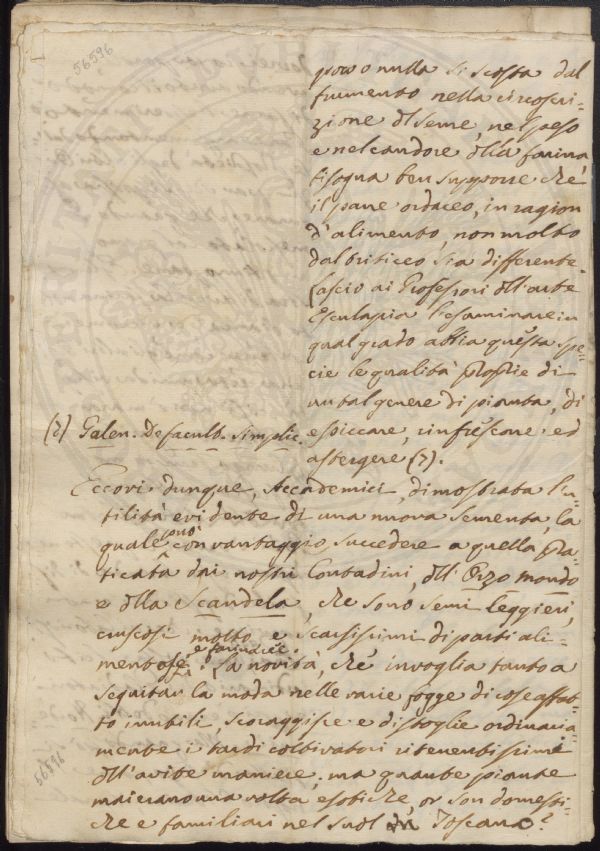 56596
poco o nulla si scosta dal
frumento nella circoscri=
zione del seme, nel peso
e nel candore della farina
bisogna ben supporre che
il pane ordaceo, in ragion
d'alimento, non molto
dal triticeo sia differente.
Lascio ai Professori dell'arte
Esculapia l'esaminare in
qual grado abbia questa spe=
cie le qualità proprie di
un tal genere di pianta, di
(7) Galen. De facult. simplic. essiccare, rinfrescare ed
astergere (7).
Eccovi dunque, Accademici, dimostrata l'u=
tilità evidente di una nuova sementa, la
quale può con vantaggio succedere a quella pra=
ticata dai nostri Contadini, dell'Orzo mondo
e della Scandela, che sono semi leggieri,
cruscosi molto, e scarsissimi di parti ali=
mentose, e farinacee. La novità, che invoglia tanto a
seguitar la moda nelle varie fogge di cose affat=
to inutili, scoraggisce e distoglie ordinaria=
mente i tardi coltivatori ritenentissimi
dell'avite maniere; ma quante piante
mai erano una volta esotiche, or son domesti=
che e familiari nel suol di Toscana?
56596